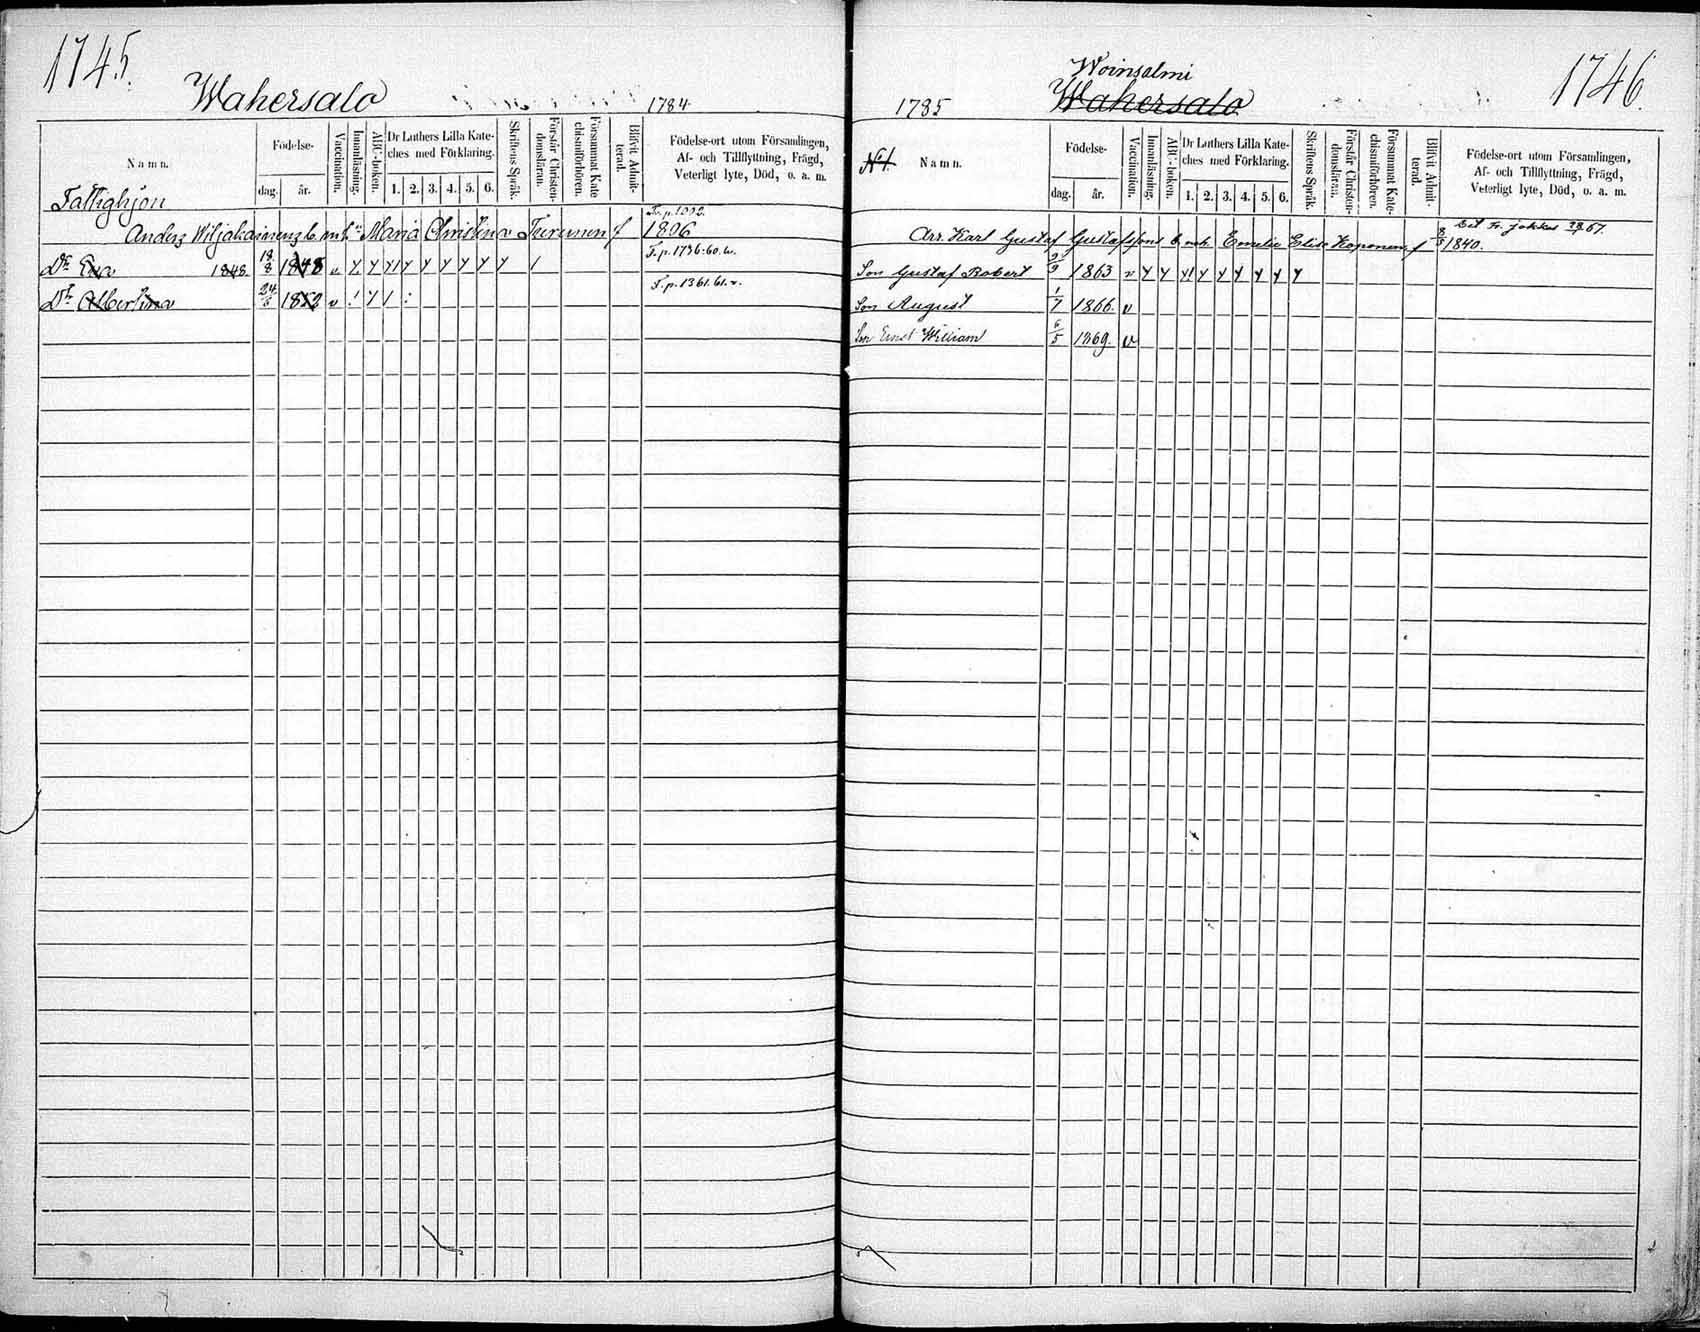 1745.
Wahersalo
1784
Namn.
Födelse-
dag. år.
Vaccination.
Innanläsning.
ABC-boken.
Dr Luthers Lilla Kate-
ches med Förklaring.
1. 2. 3. 4. 5. 6.
Skriftens Språk.
Förstår Christen-
domsläran.
Försummat Kate
chismiförhören.
Blifvit Admit-
terad.
Födelse-ort utom Församlingen,
Af- och Tillflyttning, Frägd,
Veterligt lyte, Död, o. a. m.
Fattighjon
Fr. p. 1002.
Anders Wiljahainenz b. m. h. Maria Christina Turunen f 1806
Dr Eva 1848. 18/8 1848 v F. p. 1736. 60. w.
Dr Albertina 24/8 1852 v F. p. 1361. 61. v.
1735
Woinsalmi
Wahersalo
1746.
No 1.
Namn.
Födelse-
dag. år.
Vaccination.
Innanläsning.
ABC-boken.
Dr Luthers Lilla Kate-
ches med Förklaring.
1. 2. 3. 4. 5. 6.
Skriftens Språk.
Förstår Christen-
domsläran.
Försummat Kate-
chismiförhören.
Blifvit Admit-
terad.
Födelse-ort utom Församlingen,
Af- och Tillflyttning, Frägd,
Veterligt lyte, Död, o. a. m.
Fr. jokkas 67.
Arr. Karl Gustaf Gustafssons b. m. h. Emelie Elise Koponen f 8/5 1840.
Son Gustaf Robert 9/9 1863 v
Son August 1/7 1866. v
Son Ernst William 6/5 1869. v